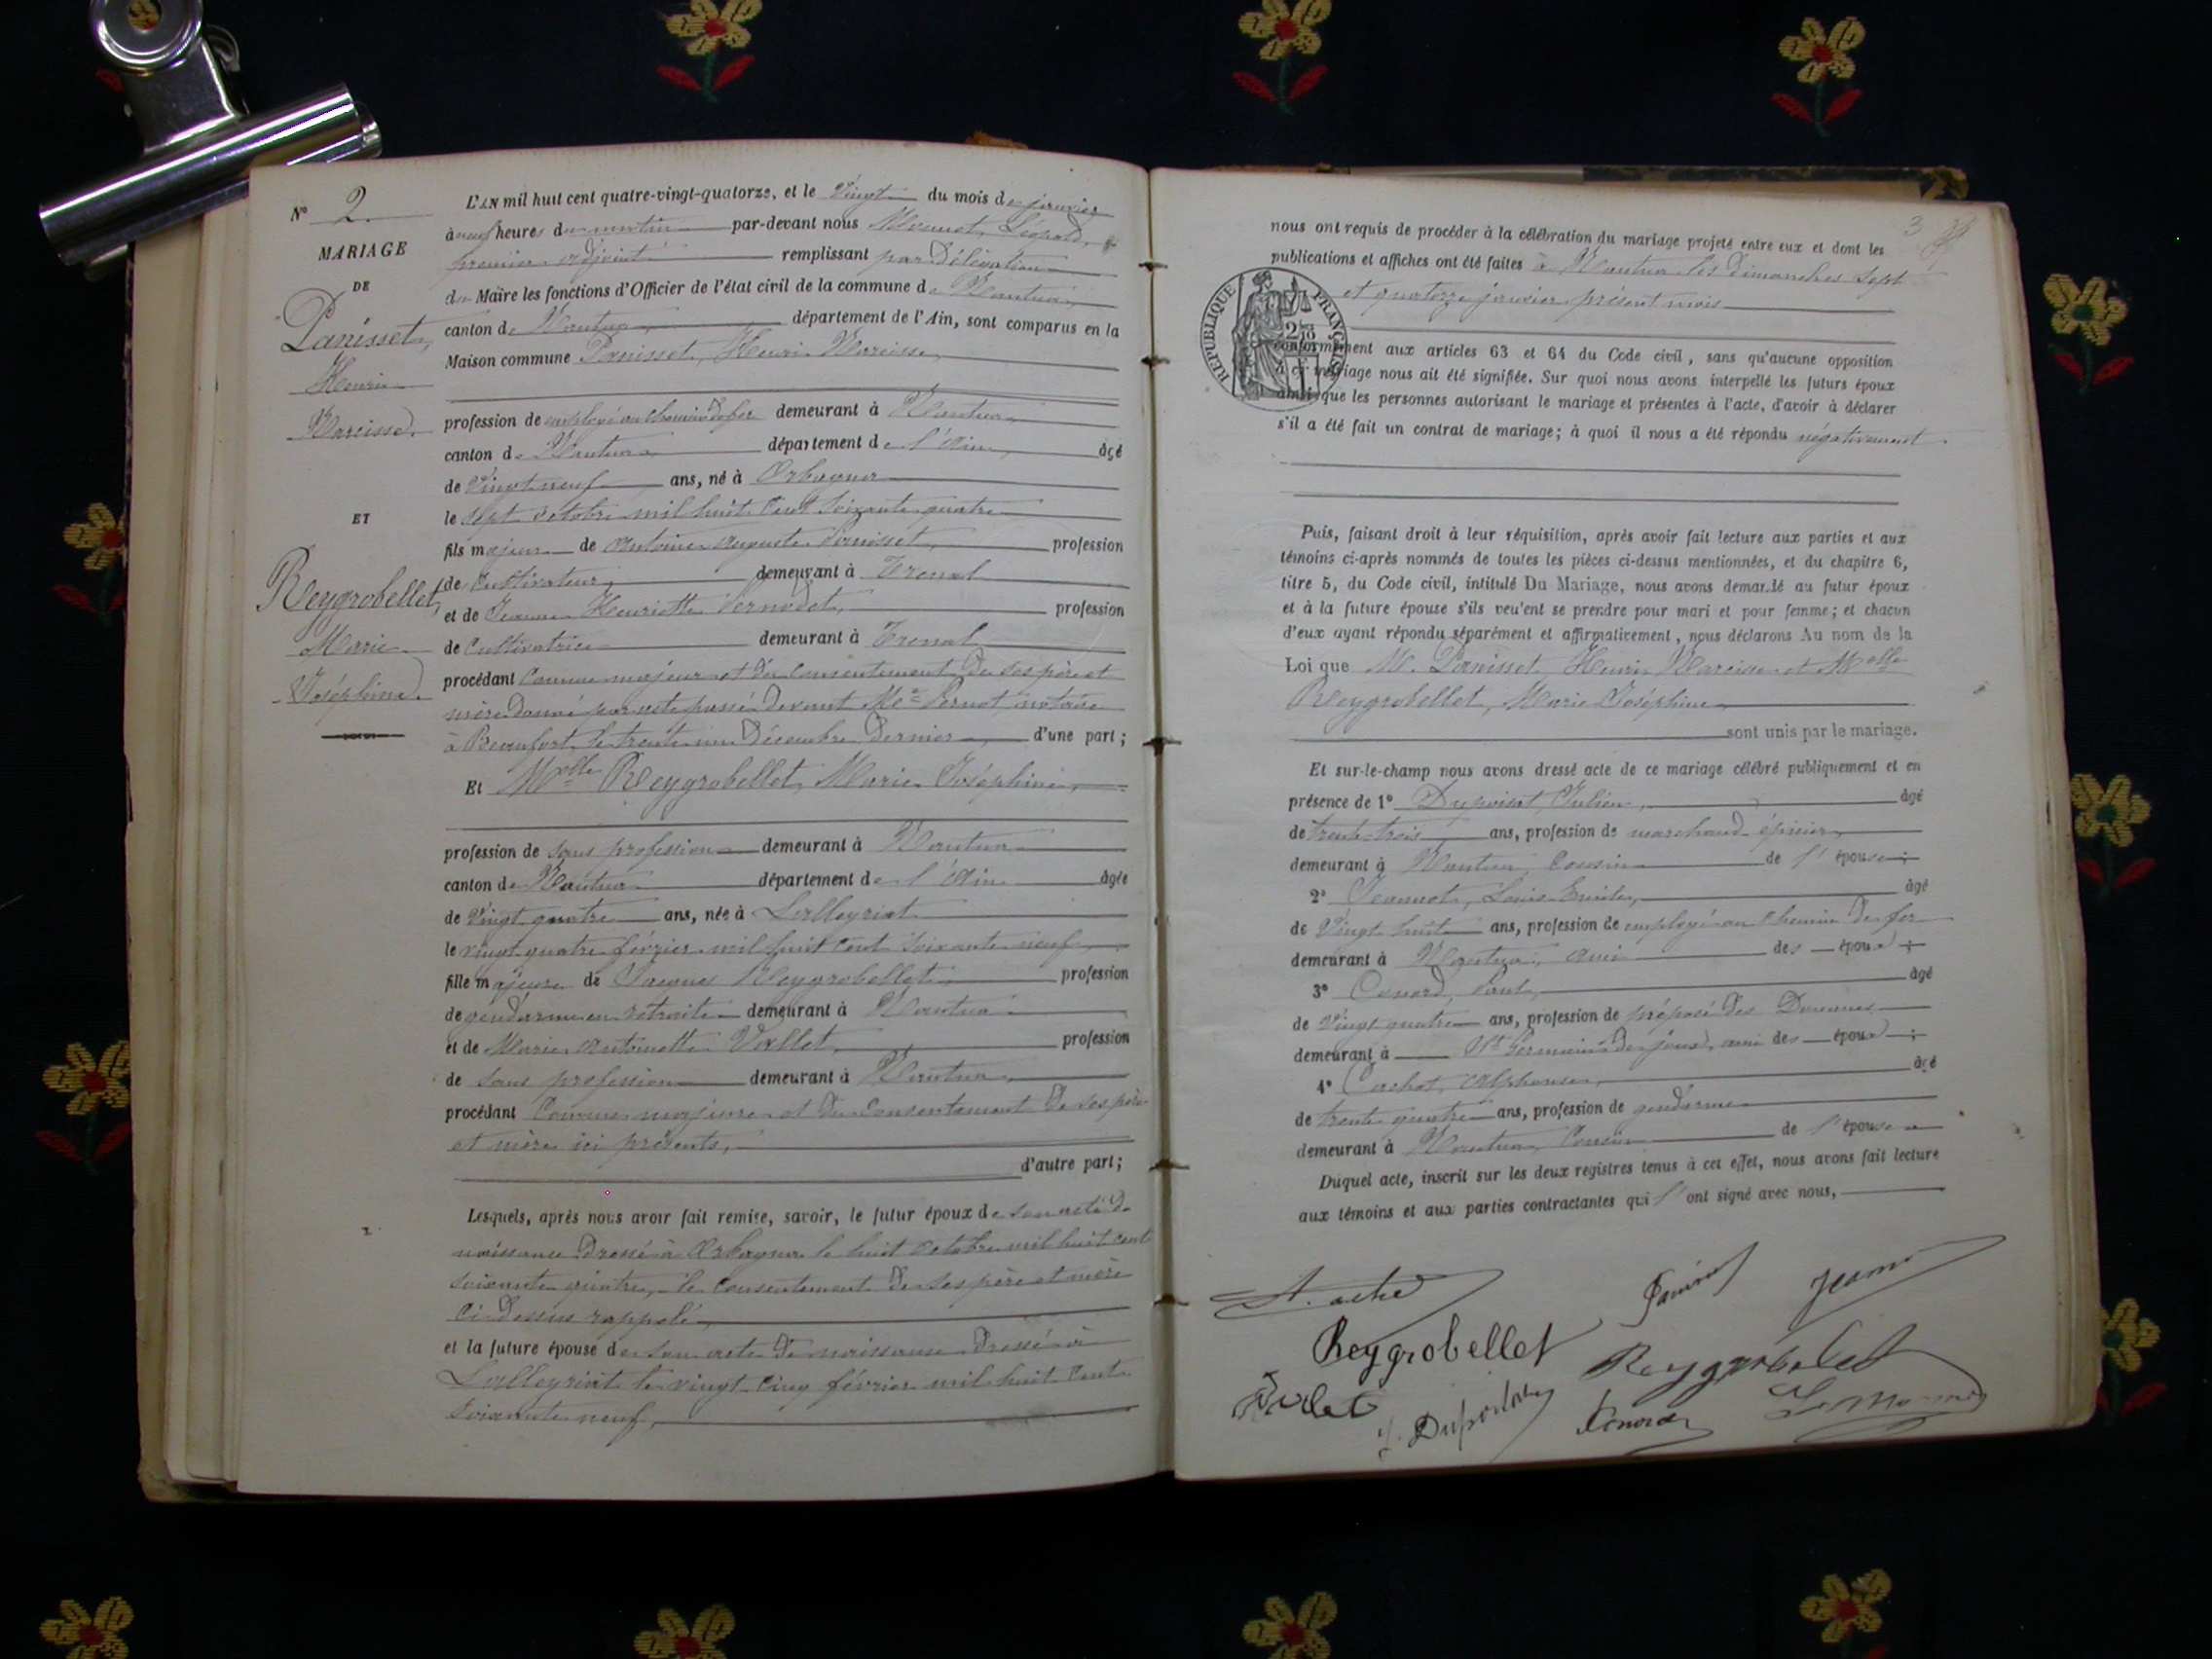 N° 2.
MARIAGE
DE
Panisset,
Henri
Narcisse.
ET
Reygrobellet,
Marie
Joséphine.
L'AN mil huit cent quatre-vingt-quatorze, et le Vingt du mois de janvier
à neuf heures du matin par-devant nous Léopold,
premier adjoint remplissant par Délégation
du Maire les fonctions d'Officier de l'état civil de la commune de Nantua,
canton de Nantua, département de l'Ain, sont comparus en la
Maison commune Panisset, Henri Narcisse,
profession de employé au Chemin de fer demeurant à Nantua
canton de Nantua département de l'Ain, âgé
de Vingt neuf ans, né à Orbagna
le sept octobre mil huit Cent Soixante quatre
fils majeur de Antoine Auguste Panisset, profession
de Cultivateur, demeurant à Trenal
et de Jeanne Henriette profession
de Cultivatrice demeurant à Trenal
procédant Comme majeur et du Consentement De Ses père et
mère donné par acte passé Devant Me notaire
à Beaufort le trente un Décembre Dernier, d'une part;
Et Melle Reygrobellet, Marie Joséphine,
profession de Sans profession demeurant à Nantua
canton de Nantua département de l'Ain âgée
de Vingt quatre ans, née à Lalleyriat
le vingt quatre février mil huit Cent Soixante neuf,
fille majeure de Jacques Reygrobellet, profession
de gendarme en retraite demeurant à Nantua
et de Marie Antoinette Vallet, profession
de Sans profession demeurant à Nantua,
procédant Comme majeure et Du Consentement De Ses père
et mère ici présents,
d'autre part;
Lesquels, après nous avoir fait remise, savoir, le futur époux de Son acte de
naissance Dressé à Orbagna le huit Octobre mil huit Cent
Soixante quatre, le Consentement De Ses père et mère
Ci-Dessus rappelé,
et la future épouse de Son acte De naissance Dressé à
Lalleyriat le vingt Cinq février mil huit Cent
Soixante neuf,
3
nous ont requis de procéder à la célébration du mariage projeté entre eux et dont les
publications et affiches ont été faites à Nantua les Dimanches Sept
et quatorze janvier présent mois
REPUBLIQUE FRANÇAISE
conformément aux articles 63 et 64 du Code civil, sans qu'aucune opposition
à ce mariage nous ait été signifiée. Sur quoi nous avons interpellé les futurs époux
ainsi que les personnes autorisant le mariage et présentes à l'acte, d'avoir à déclarer
s'il a été fait un contrat de mariage; à quoi il nous a été répondu négativement.
Puis, faisant droit à leur réquisition, après avoir fait lecture aux parties et aux
témoins ci-après nommés de toutes les pièces ci-dessus mentionnées, et du chapitre 6,
titre 5, du Code civil, intitulé Du Mariage, nous avons demandé au futur époux
et à la future épouse s'ils veulent se prendre pour mari et pour femme; et chacun
d'eux ayant répondu séparément et affirmativement, nous déclarons Au nom de la
Loi que M. Panisset, Henri Narcisse et Melle
Reygrobellet, Marie Joséphine
sont unis par le mariage.
Et sur-le-champ nous avons dressé acte de ce mariage célébré publiquement et en
présence de 1° Dupoisat, Julien, âgé
de trente-trois ans, profession de marchand épicier,
demeurant à Nantua, Cousin de l'épouse;
2° Jeannot, Louis Emile, âgé
de Vingt huit ans, profession de employé au Chemin De fer
demeurant à Nantua, ami des époux;
3° Conord, Paul, âgé
de Vingt quatre ans, profession de préposé Des Douanes
demeurant à St Germain de joux, ami des époux;
4° Cachot, Alphonse, âgé
de trente quatre ans, profession de gendarme
demeurant à Nantua, Cousin de l'épouse
Duquel acte, inscrit sur les deux registres tenus à cet effet, nous avons fait lecture
aux témoins et aux parties contractantes qui l'ont signé avec nous,
Reygrobellet
Reygrobellet
J. Dupoisat
Conord